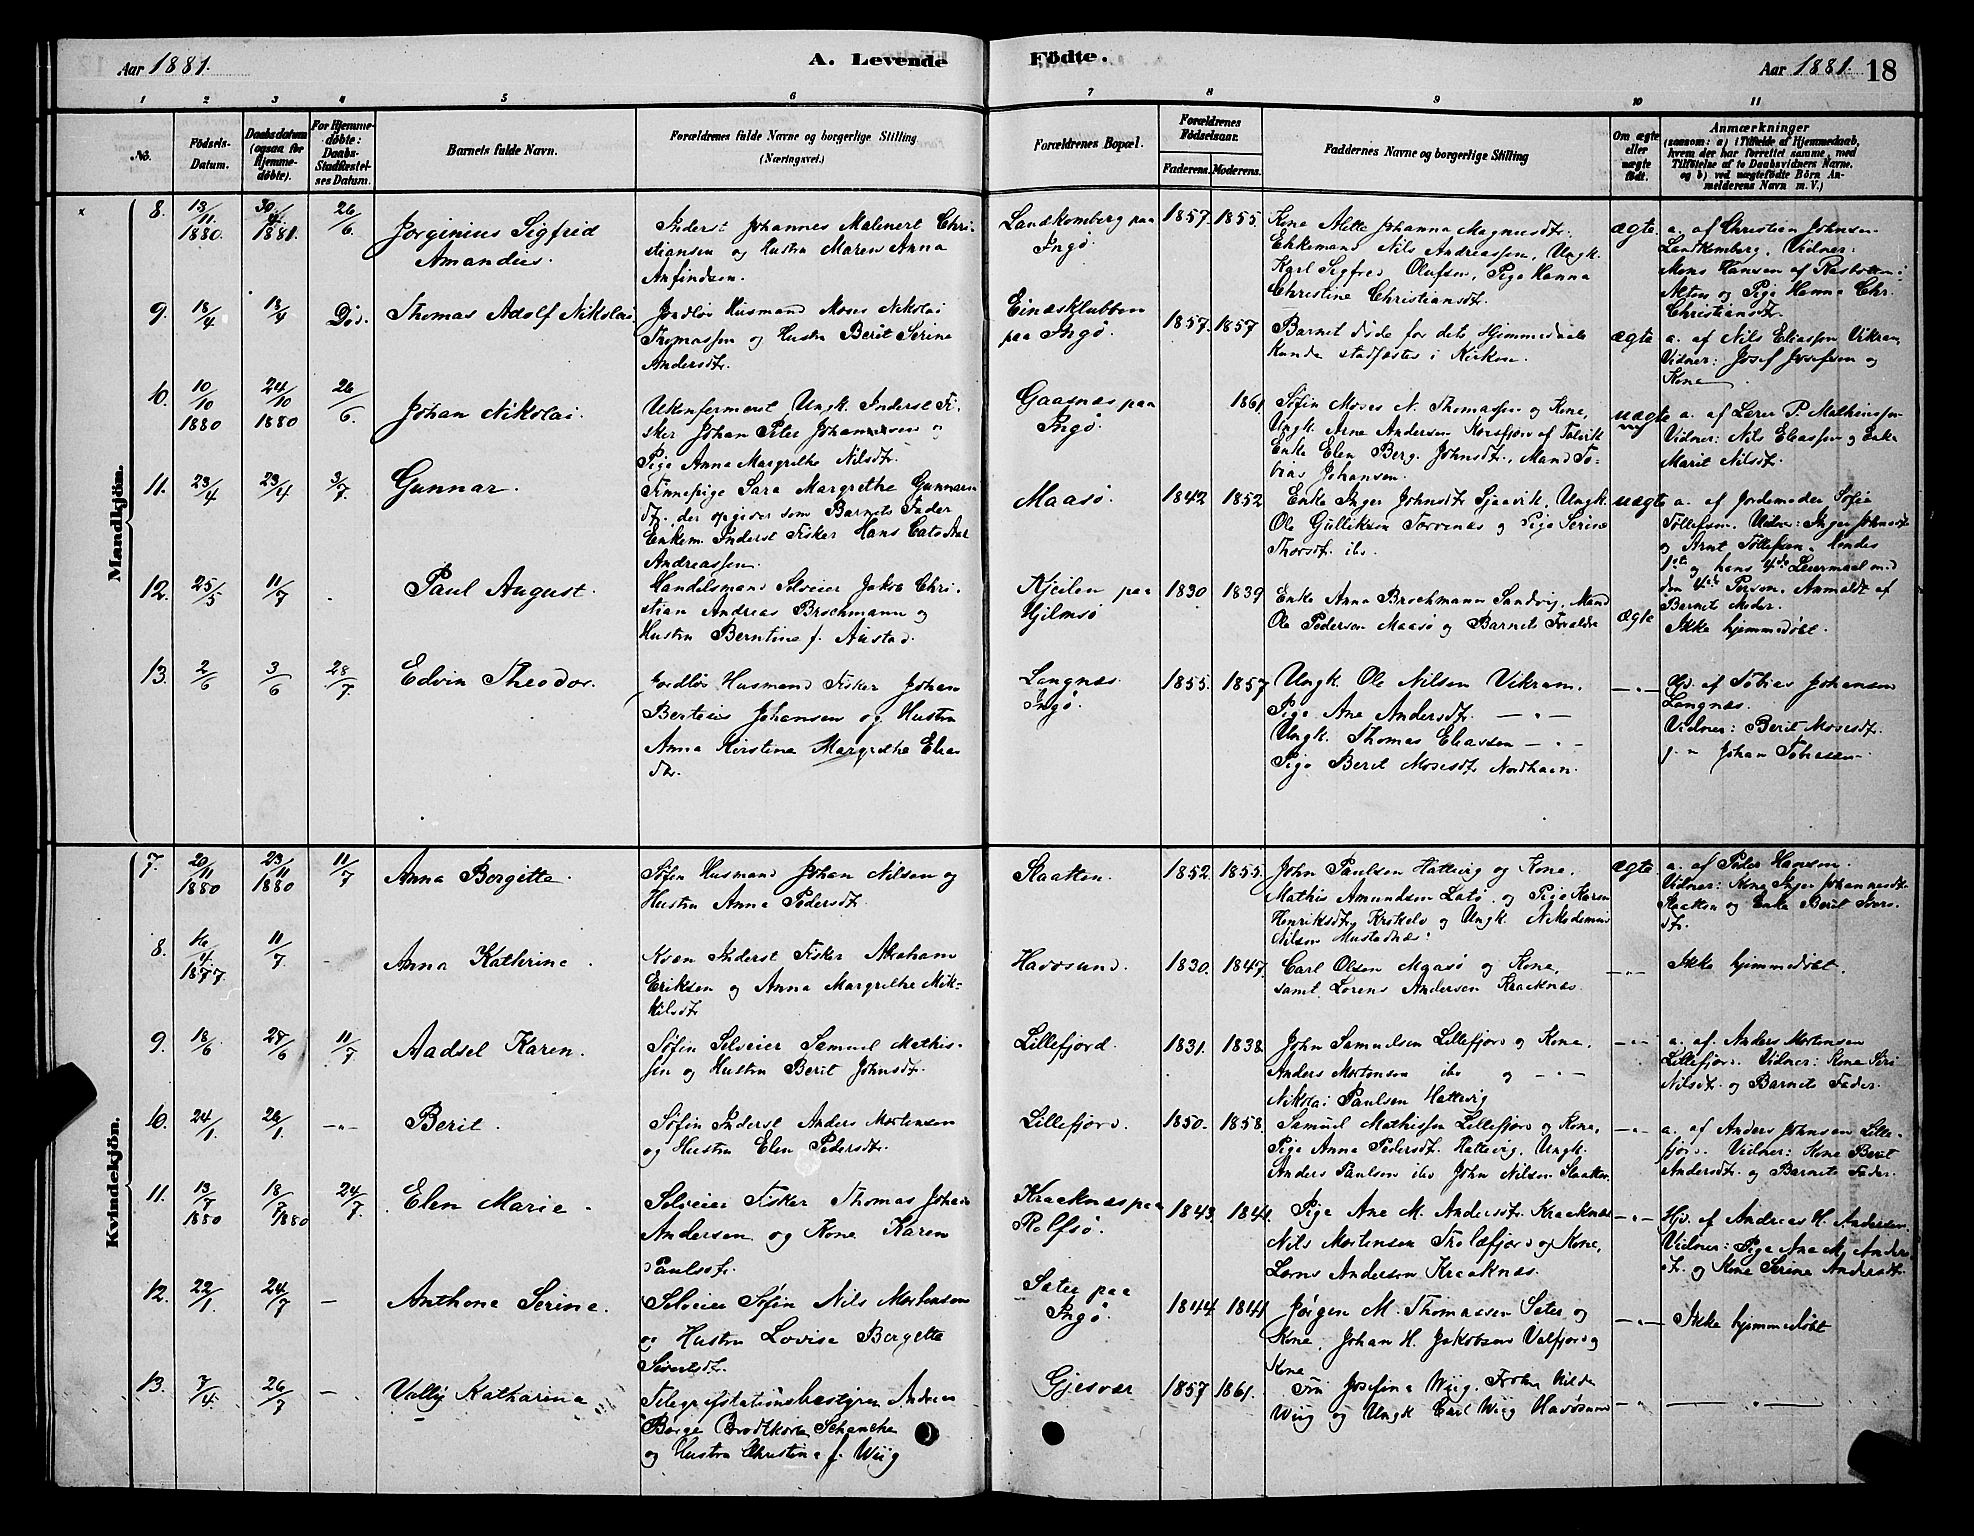 Aar 1881.
A. Levende
Födte.
Aar 1881. 18
1 2 3 4 5 6 7 8 9 10 11
No.
Födsels-Datum.
Daabsdatum (ogsaa for Hjemme-döbte).
For Hjemme-döbte: Daabs-Stadfæstel-ses Datum.
Barnets fulde Navn.
Forældrenes fulde Navne og borgerlige Stilling (Næringsvei.)
Forældrenes Bopæl.
Forældrenes Födselsaar.
Faderens. Moderens.
Faddernes Navne og borgerlige Stilling
Om ægte eller uægte födt.
Anmærkninger
(saasom: a) i Tilfælde af Hjemmedaab, hvem der har forrettet samme, med Tilföielse af to Daabsvidners Navne, og b) ved uægtefödte Börn Anmelderens Navn m. V.)
Mandkjön.
8. 13/11 1880. 30/4 1881. 26/6
Jorginius Sigfrid
Amandus.
Inderst Johannes Malinert Chri-
stiansen og Hustru Maren Anna
Anfindsen.
Landkomberg paa
Ingø.
1857. 1855.
Kone Mette Johanna Magnusdtr.
Enkemand Nils Andreassen, Ungk.
Karl Sigfred Olufsen, Pige Hanna
Christine Christiansdtr.
ægte.
a. af Christian Johnsen
Landkomberg. Vidner:
Mons Hansen af
Alten og Pige Hanna Chr.
Christiansdtr.
9. 18/4 18/4 Död.
Thomas Adolf Nikolai
Jordløs Husmand Moses Nikolai
Thomassen og Hustru Berit Serine
Andersdtr.
Einæsklubben
paa Ingø.
1857. 1857
Barnet døde før dets Hjemmedaab
kunde stadfæstes i Kirken.
ægte
a. af Nils Eliassen Vikran
Vidner: Josef Josefsen og
Kone
10. 10/10 1880 24/10 1880 26/6.
Johan Nikolai
Ukonfirmeret Ungk. Inderst Fi-
sker Johan Peter Johannesen og
Pige Anna Margrethe Nilsdtr.
Gaasnæs paa
Ingø.
1861
Søfin Moses N. Thomassen og Kone,
Ungk. Arne Andersen Korsfjord af Talvik
Enke Elen Berg. Johnsdtr., Mand To-
bias Johansen.
uægte
a. af Lærer P. Mathisen
Vidner: Nils Eliassen og Enke
Marit Nilsdtr.
11. 23/4 23/4 3/7.
Gunnar.
Finnepige Sara Margrethe Gunnars
dtr. der opgiver som Barnets Fader
Enkem. Inderst Fisker Hans
Andreassen.
Maasø.
1842 1852
Enke Inger Johnsdtr. Sjaavik, Ungk.
Ole Gulliksen Torvenæs og Pige Serine
Thorsdtr. ibd.
uægte
a. af Jordemoder Sofie
Tollefsen. Vidner: Inger Johnsdtr
og Arnt Tollefsen. Hendes
1ste og hans 4de Leiermaal med
den 4de Person. Anmeldt af
Barnets Moder.
12. 25/5 11/7
Paul August.
Handelsmand Selveier Jakob Chri-
stian Andreas Brochmann og
Hustru Berntine f. Austad.
Kjeilen paa
Hjelmsø
1830 1839
Enke Anna Brochmann Sandvig, Mand
Ole Pedersen Maasø og Barnets Forældre
ægte
Ikke hjemmedøbt.
13. 2/6 3/6 28/7.
Edvin Theodor.
Jordløs Husmand Fisker Johan
Berteus Johansen og Hustru
Anna Kirstina Margrethe Elias
dtr.
Langnæs.
Ingø.
1855. 1857
Ungk. Ole Nilsen Vikram.
Pige Ane Andersdtr. — " —
Ungk. Thomas Eliassen — " —
Pige Berit Mosesdtr Nordhavn.
— " —
Hjd. af Tobias Johansen
Langnæs.
Vidner: Berit Mosesdtr.
Johan Tobiasen
Kvindekjön.
7. 20/11 1880 23/11 1880 11/7
Anna Borgitta.
Søfin Husmand Johan Nilsen og
Hustru Anna Pedersdtr.
Slaatten.
1852. 1855.
John Paulsen Hattevig og Kone.
Mathis Amundsen Latø, og Pige Karen
Henriksdtr. Krokelv og Ungk. Nikodemus
Nilsen Mustadnæs.
ægte.
a. af Peder Hansen.
Vidner: Kone Inger Johannesdtr.
Slaatten og Enke Berit Ivers-
dtr.
8. 16/4. 1877. 11/7.
Anna Kathrine.
Kvæn Inderst Fisker Abraham
Eriksen og Anna Margrethe Mik-
kilsdtr.
Havøsund.
1830. 1847.
Carl Olsen Maasø og Kone,
samt Lorens Andersen Kraaknæs.
— " —
Ikke hjemmedøbt.
9. 18/6 27/6 11/7
Aadsel Karen.
Søfin Selveier Samuel Mathis-
sen og Hustru Berit Johnsdtr.
Lillefjord.
1831. 1838.
John Samuelsen Lillefjord og Kone.
Anders Mortensen ibd og — " —
Nikolai Paulsen Hattevig
— " —
a. af. Anders Mortensen
Lillefjord. Vidner: Kone Siri
Nilsdtr. og Barnets Fader.
10. 24/1. 26/1. — " —
Berit.
Søfin Inderst Anders Mortensen
og Hustru Elen Pedersdtr.
Lillefjord.
1850. 1858.
Samuel Mathissen Lillefjord og Kone,
Pige Anna Pedersdtr. Hattevig, Ungk.
Anders Paulsen ibd John Nilsen Slaatten.
— " —
a. af Anders Johnsen Lille-
fjord. Vidner: Kone Berit
Andersdtr. og Barnets Fader.
11. 13/7 1880 18/7 1880 24/7.
Elen Marie.
Selveier Fisker Thomas Johan
Andersen og Kone Karen
Paulsdtr.
Kraaknæs paa
Rolfsø.
1843. 1841.
Pige Ane M. Andersdtr. Kraaknæs
Nils Mortensen Trolefjord og Kone,
Lorns Andersen Kraaknæs.
— " —
Hjd. af Andreas H. Andersen.
Vidner: Pige Ane M. Anders
dtr. og Kone Serine Andersdtr.
12. 22/1 24/7 —
Anthone Serine.
Selveier Søfin Nils Mortensen
og Hustru Lovise Bergitta
Sivertsdtr.
Sater paa
Ingø.
1844. 1841
Jørgen M. Thomassen Sater og
Kone, Johan H. Jakobsen Valfjord og
Kone
— " —
Ikke hjemmedøbt
13. 7/4. 26/7 —
Vally Katharina
Telegrafstationsbestyrer Andreas
Borge Brodtkorb Schanche
og Hustru Christine f. Wiig
Gjesvær
1857 1861.
Frk Josefine Wiig. Frøken Hilda
Wiig og Ungk Carl Wiig Havøsund
— " —
— " —